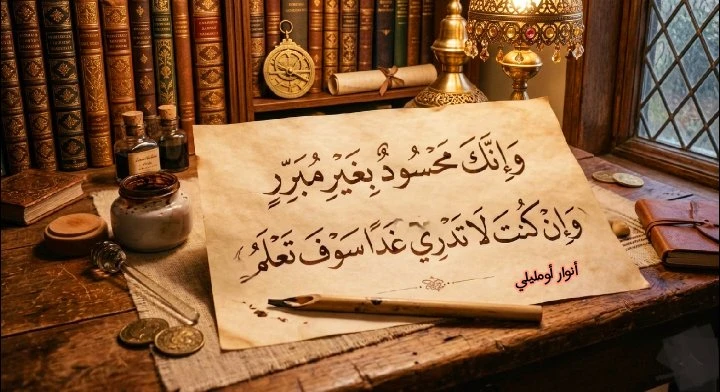 وَإِنَّكَ مَحْسُودٌ بِغَيْرِ مُبَرِّرٍ
وَإِنْ كُنْتَ لَا تَدْرِي غَدًا سَوْفَ تَعْلَمُ
أنوار أومليلي